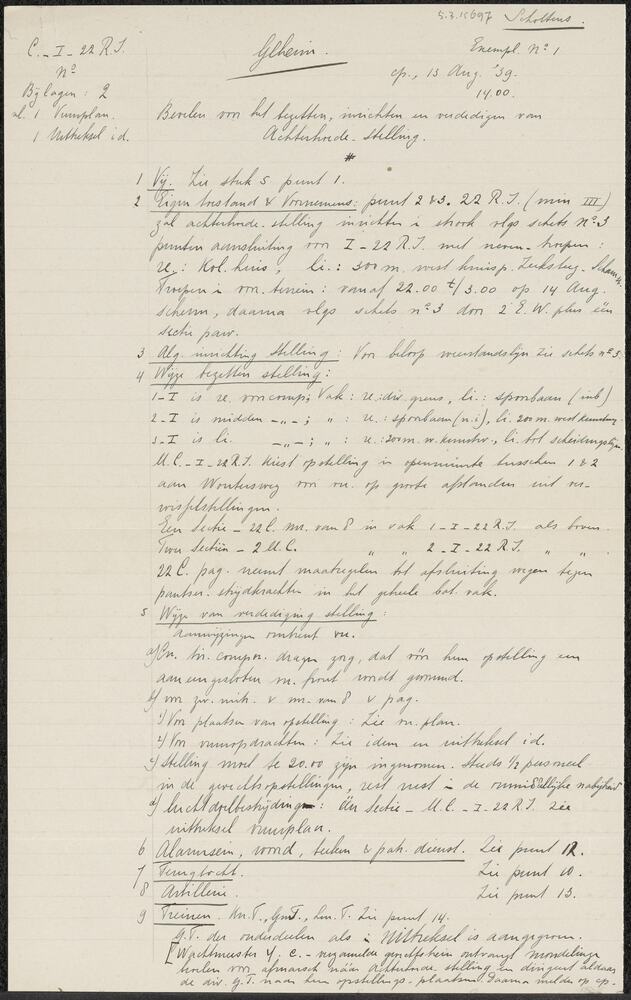 5.3.15697 Scholtens.
C.-I-22 R.I.
Geheim.
Exempl. No 1
No
cp., 13 Aug. '39.
Bylagen: 2
14.00.
al. 1 Vuurplan.
1 Uittreksel i.d.
Bevelen voor het bezetten, inrichten en verdedigen van
Achterhoede-stelling.
1 Vij. Zie stuk 5 punt 1.
2 Eigen toestand & Voornemens: punt 2 & 3. 22 R.I. (min III)
zal achterhoede-stelling inrichten i strook vlgs schets No 3
punten aansluiting voor I-22 R.I. met neven-troepen:
re.: Kol. huis, li.: 300 m. west kruisp.
Troepen i voor-terrein: vanaf 22.00 t/ 3.00 op 14 Aug.
scherm, daarna vlgs schets no 3 door 2 E.W. plus één
sectie paw.
3 Alg. inrichting stelling: Voor beloop weerstandslijn zie schets no 3.
4 Wijze bezetten stelling:
1-I is re. voorcomp; Vak: re: div. grens, li.: spoorbaan (inb)
2-I is midden -„-; „ : re.: spoorbaan (n.i.), li. 200 m. west kunstweg
3-I is li. -„-; „ : re.: 200 m. w. kunstw., li. tot scheidingslijn
M.C.-I-22 R.I. kiest opstelling in openruimte tusschen 1 & 2
aan Woutersweg voor vu. op groote afstanden uit ver-
wisselstellingen.
Een Sectie - 22 C. mr. van 8 in vak 1-I-22 R.I. als boven
Twee Sectiën - 2 M.C. „ „ 2-I-22 R.I. „ „
22 C. pag. neemt maatregelen tot afsluiting wegen tegen
pantser-strijdkrachten in het geheele bat. vak.
5 Wijze van verdediging stelling:
aanwijzingen omtrent vu.
a) Cn. tir. compn. dragen zorg, dat vóór hun opstelling een
aaneengesloten vu. front wordt gevormd.
b) voor zw. mitr. & mr. van 8 & pag.
1) Voor plaatsen van opstelling: Zie vu. plan.
2) Voor vuuropdrachten: Zie idem en uittreksel id.
c) Stelling moet te 20.00 zijn ingenomen. Steeds 1/2 personeel
in de gevechtsopstellingen, rest rust i de onmiddellijke nabijheid
d) luchtdoelbestrijding: één Sectie - M.C.-I-22 R.I. zie
uittreksel vuurplan.
6 Alarmsein, woord, teeken & patr. dienst. Zie punt 12.
7 Terugtocht. Zie punt 10.
8 Artillerie. Zie punt 13.
9 Treinen. Kn.T., G.T., Lm.T. Zie punt 14.
G.T. der onderdeelen als i Uittreksel is aangegeven.
[Wachtmeester 4. C. - verzamelen gevechtstrein ontvangt mondelinge
bevelen voor afmarsch naar Achterhoede-stelling en dirigeert aldaar
de div. G.T. naar hun opstellings-plaatsen. Daarna melde op cp.